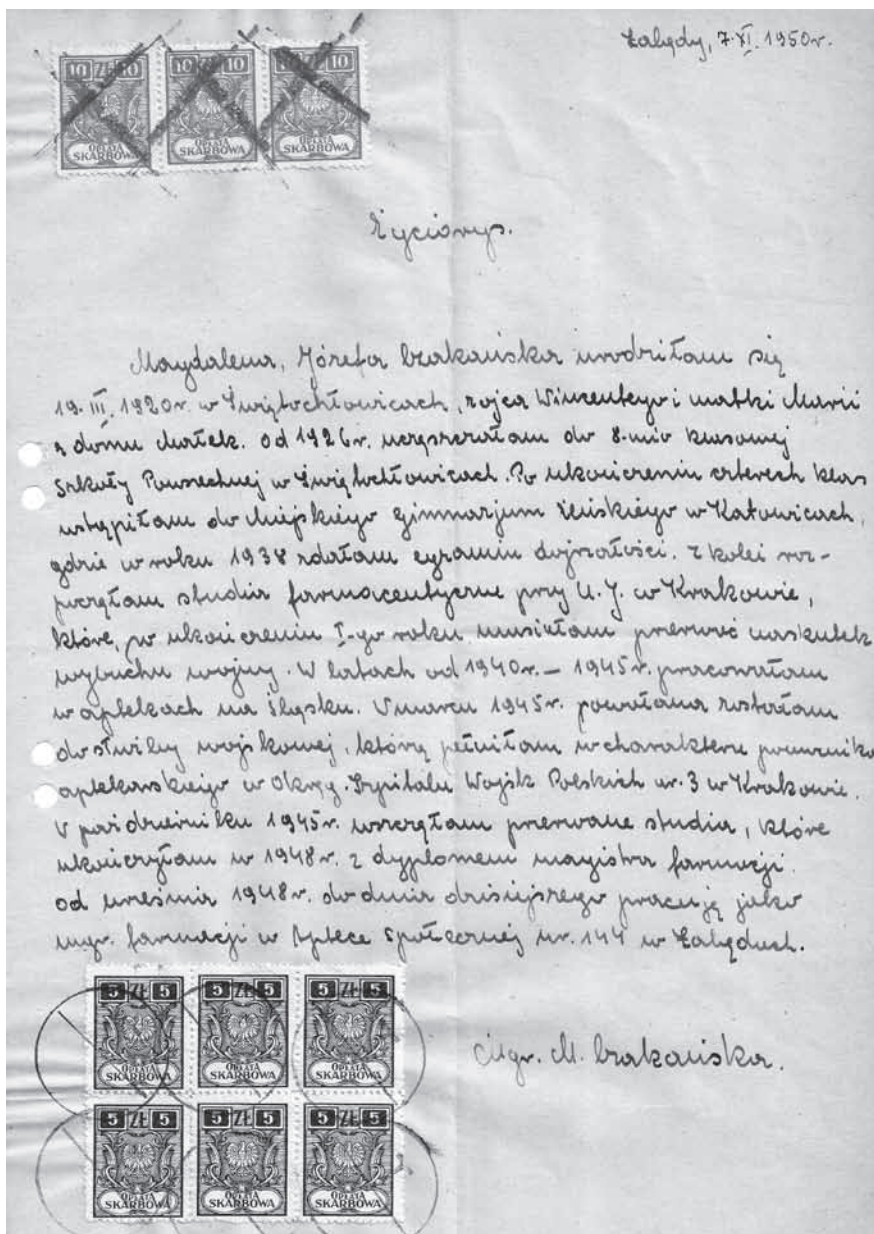 Łabędy, 7.XI.1950r.
10 ZŁ 10 10 ZŁ 10 10 ZŁ 10
OPŁATA SKARBOWA OPŁATA SKARBOWA OPŁATA SKARBOWA
Życiorys.
Magdalena, Józefa urodziłam się
19.III.1920r. w Świętochłowicach, z ojca Wincentego i matki Marii
z domu Małek. Od 1926r. uczęszczałam do 8-mio klasowej
Szkoły Powszechnej w Świętochłowicach. Po ukończeniu czterech klas
wstąpiłam do Miejskiego Gimnazjum Żeńskiego w Katowicach,
gdzie w roku 1938 zdałam egzamin dojrzałości. Z kolei roz-
poczęłam studia farmaceutyczne przy U.J. w Krakowie,
które, po ukończeniu I-go roku musiałam przerwać naskutek
wybuchu wojny. W latach od 1940r. – 1945r. pracowałam
w aptekach na Śląsku. W marcu 1945r. powołana zostałam
do służby wojskowej, którą pełniłam w charakterze pomocnika
aptekarskiego w Okręg. Szpitalu Wojsk Polskich nr. 3 w Krakowie.
W październiku 1945r. wszczęłam przerwane studia, które
ukończyłam w 1948r. z dyplomem magistra farmacji.
Od września 1948r. do dnia dzisiejszego pracuję jako
mgr. farmacji w Aptece Społecznej nr. 144 w Łabędach.
5 ZŁ 5 5 ZŁ 5 5 ZŁ 5
OPŁATA SKARBOWA OPŁATA SKARBOWA OPŁATA SKARBOWA
Mgr. M.
5 ZŁ 5 5 ZŁ 5 5 ZŁ 5
OPŁATA SKARBOWA OPŁATA SKARBOWA OPŁATA SKARBOWA